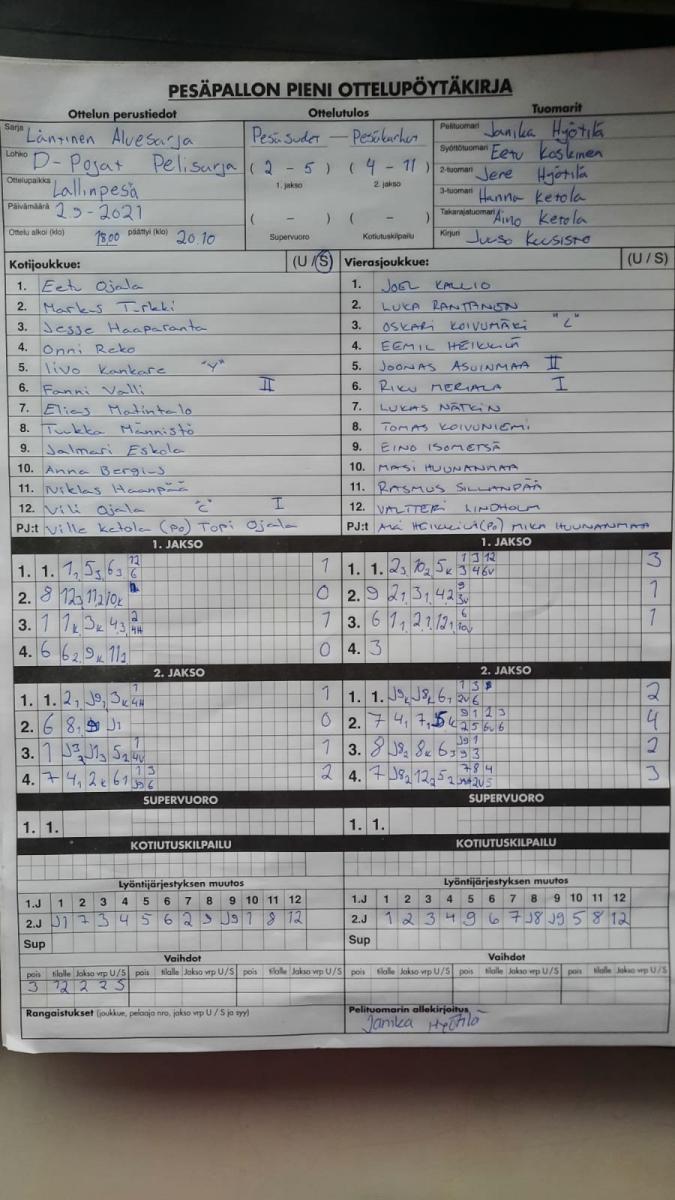 PESÄPALLON PIENI OTTELUPÖYTÄKIRJA
Ottelun perustiedot Ottelutulos Tuomarit
Sarja Läntinen Aluesarja Pesäsudet — Pesäkarhut Pelituomari Janika Hyötilä
Lohko D-Pojat Pelisarja ( 2 – 5 ) ( 4 – 11 ) Syöttötuomari Eetu Koskinen
Ottelupaikka Lallinpesä 1. jakso 2. jakso 2-tuomari Jere Hyötilä
Päivämäärä 2.9-2021 3-tuomari Hanna Ketola
( – ) ( – ) Takarajatuomari Aino Ketola
Ottelu alkoi (klo) 18.00 päättyi (klo) 20.10 Supervuoro Kotiutuskilpailu Kirjuri Juuso Kuusisto
Kotijoukkue: (U / S) Vierasjoukkue: (U / S)
1. Eetu Ojala 1. JOEL KALLIO
2. Markus Turkki 2. LUKA RANTANEN
3. Jesse Haaparanta 3. OSKARI KOIVUMÄKI "C"
4. Onni Reko 4. EEMIL HEIKKILÄ
5. Iivo Kankare "Y" 5. JOONAS ASUINMAA II
6. Fanni Valli II 6. RIKU MERIALA I
7. Elias Matintalo 7. LUKAS NÄTKIN
8. Tuukka Männistö 8. TOMAS KOIVUNIEMI
9. Jalmari Eskola 9. EINO ISOMETSÄ
10. Anna Bergius 10. MASI HUUNANMAA
11. Niklas Haanpää 11. RASMUS SILLANPÄÄ
12. Vili Ojala "C" I 12. VALTTERI LINDHOLM
PJ:t Ville Ketola (PO) Topi Ojala PJ:t HEIKKILÄ (PO) MIKA HUUNANMAA
1. JAKSO 1. JAKSO
1. 1. 1 1. 1. 3
2. 8 0 2. 9 1
3. 1 1 3. 6 1
4. 6 0 4. 3
2. JAKSO 2. JAKSO
1. 1. 1 1. 1. 2
2. 6 0 2. 7 4
3. 1 1 3. 8 2
4. 7 2 4. 7 3
SUPERVUORO SUPERVUORO
1. 1. 1. 1.
KOTIUTUSKILPAILU KOTIUTUSKILPAILU
Lyöntijärjestyksen muutos Lyöntijärjestyksen muutos
1.J 1 2 3 4 5 6 7 8 9 10 11 12 1.J 1 2 3 4 5 6 7 8 9 10 11 12
2.J J1 7 3 4 5 6 2 9 J9 1 8 12 2.J 1 2 3 4 9 6 7 J8 J9 5 8 12
Sup Sup
Vaihdot Vaihdot
pois tilalle Jakso vrp U / S pois tilalle Jakso vrp U / S pois tilalle Jakso vrp U / S pois tilalle Jakso vrp U / S pois tilalle Jakso vrp U / S pois tilalle Jakso vrp U / S
3 12 2 2 S
Rangaistukset (joukkue, pelaaja nro, jakso vrp U / S ja syy) Pelituomarin allekirjoitus
Janika Hyötilä